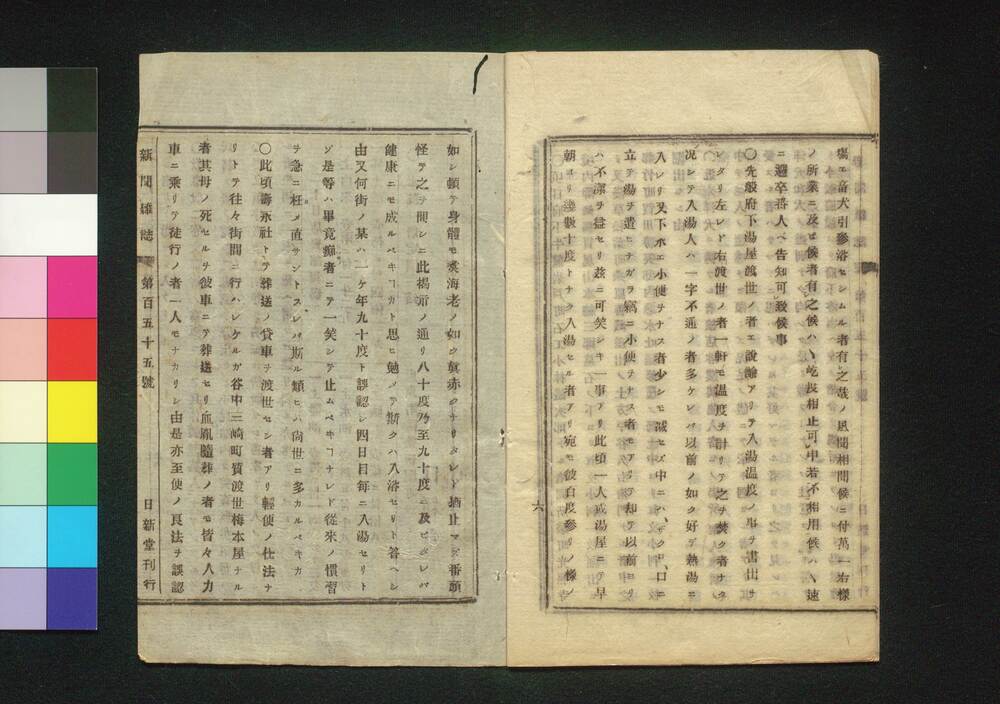 場エ畜犬引參浴セシムル者有之哉ノ風聞相聞候ニ付萬一右様
ノ所業ニ及ビ候者有之候ハヽ屹度相止可申若不相用候ハヽ速
ニ邏卒番人ヘ告知可致候事
〇先般府下湯屋渡世ノ者エ說諭アリテ入湯温度ノ
タリ左レド右渡世ノ者一軒モ温度ヲ計リテ之ヲ焚ク者ナク
况シテ入湯人ハ一字不通ノ者多ケレバ以前ノ如ク好デ熱湯ニ
入レリ又下水エ小便ヲナス者少シモ減セズ中ニハ
立テ湯ヲ遣ヒナガラ竊ニ小便ヲナス者モアリテ却テ以前ヨリ
ハ不潔ヲ益セリ茲ニ可笑シキ一事アリ此頃一人或湯屋ニテ早
朝ヨリ幾數十度トナク入湯セル者アリ宛モ彼百度參リノ様ノ
六
如シ頓テ身體モ煑海老ノ如ク眞赤ニナリタレド猶止マズ番頭
怪テ之ヲ問シニ此揭示ノ通リ八十度乃至九十度ニ及ビタレバ
健康ニモ成ルベキヿカト思ヒ勉メテ斯クハ入浴セリト答ヘシ
由又何街ノ某ハ一ケ年九十度ト誤認シ四日目每ニ入湯セリト
ゾ是等ハ畢竟癡者ニテ一笑シテ止ムベキヿナレド從來ノ慣習
ヲ急ニ枉メ直サントスレバ斯ル類ヒハ尙世ニ多カルベキカ
〇此頃壽永社トテ葬送ノ貸車ヲ渡世セシ者アリ輕便ノ仕法ナ
リトテ往々街間ニ行ハレケルガ谷中三崎町質渡世梅本屋ナル
者其母ノ死セルヲ彼車ニテ葬送セリ血胤隨葬ノ者モ皆々人力
車ニ乘リテ徒行ノ者一人モナカリシ由是亦至便ノ良法ヲ誤認
新聞雜誌 第百五十五號 日新堂刊行